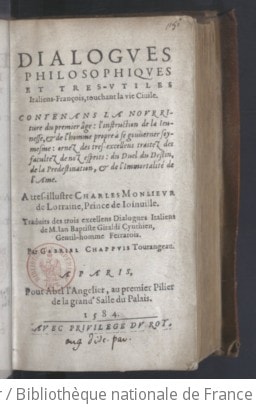 DIALOGVES
PHILOSOPHIQVES
ET TRES-VTILES
Italiens-François, touchant la vie Ciuile.
CONTENANS LA NOVRRI-
ture du premier âge: l'instruction de la ieu-
nesse, & de l'homme propre à se gouuerner soy-
mesme: ornez des tres-excellens traitez des
facultez de noz esprits: du Duel du Destin,
de la Predestination, & de l'immortalité de
l'Ame.
A tres-illustre CHARLES MONSIEVR
de Lorraine, Prince de Ioinuille.
Traduits des trois excellens Dialogues Italiens
de M. Ian Baptiste Giraldi Cynthien,
Gentil-homme Ferrarois.
Par GABRIEL CHAPPVIS Tourangeau.
A PARIS,
Pour Abel l'Angelier, au premier Pilier
de la grand' Salle du Palais.
1584.
AVEC PRIVILEGE DV ROY.
r / Bibliothèque nationale de France